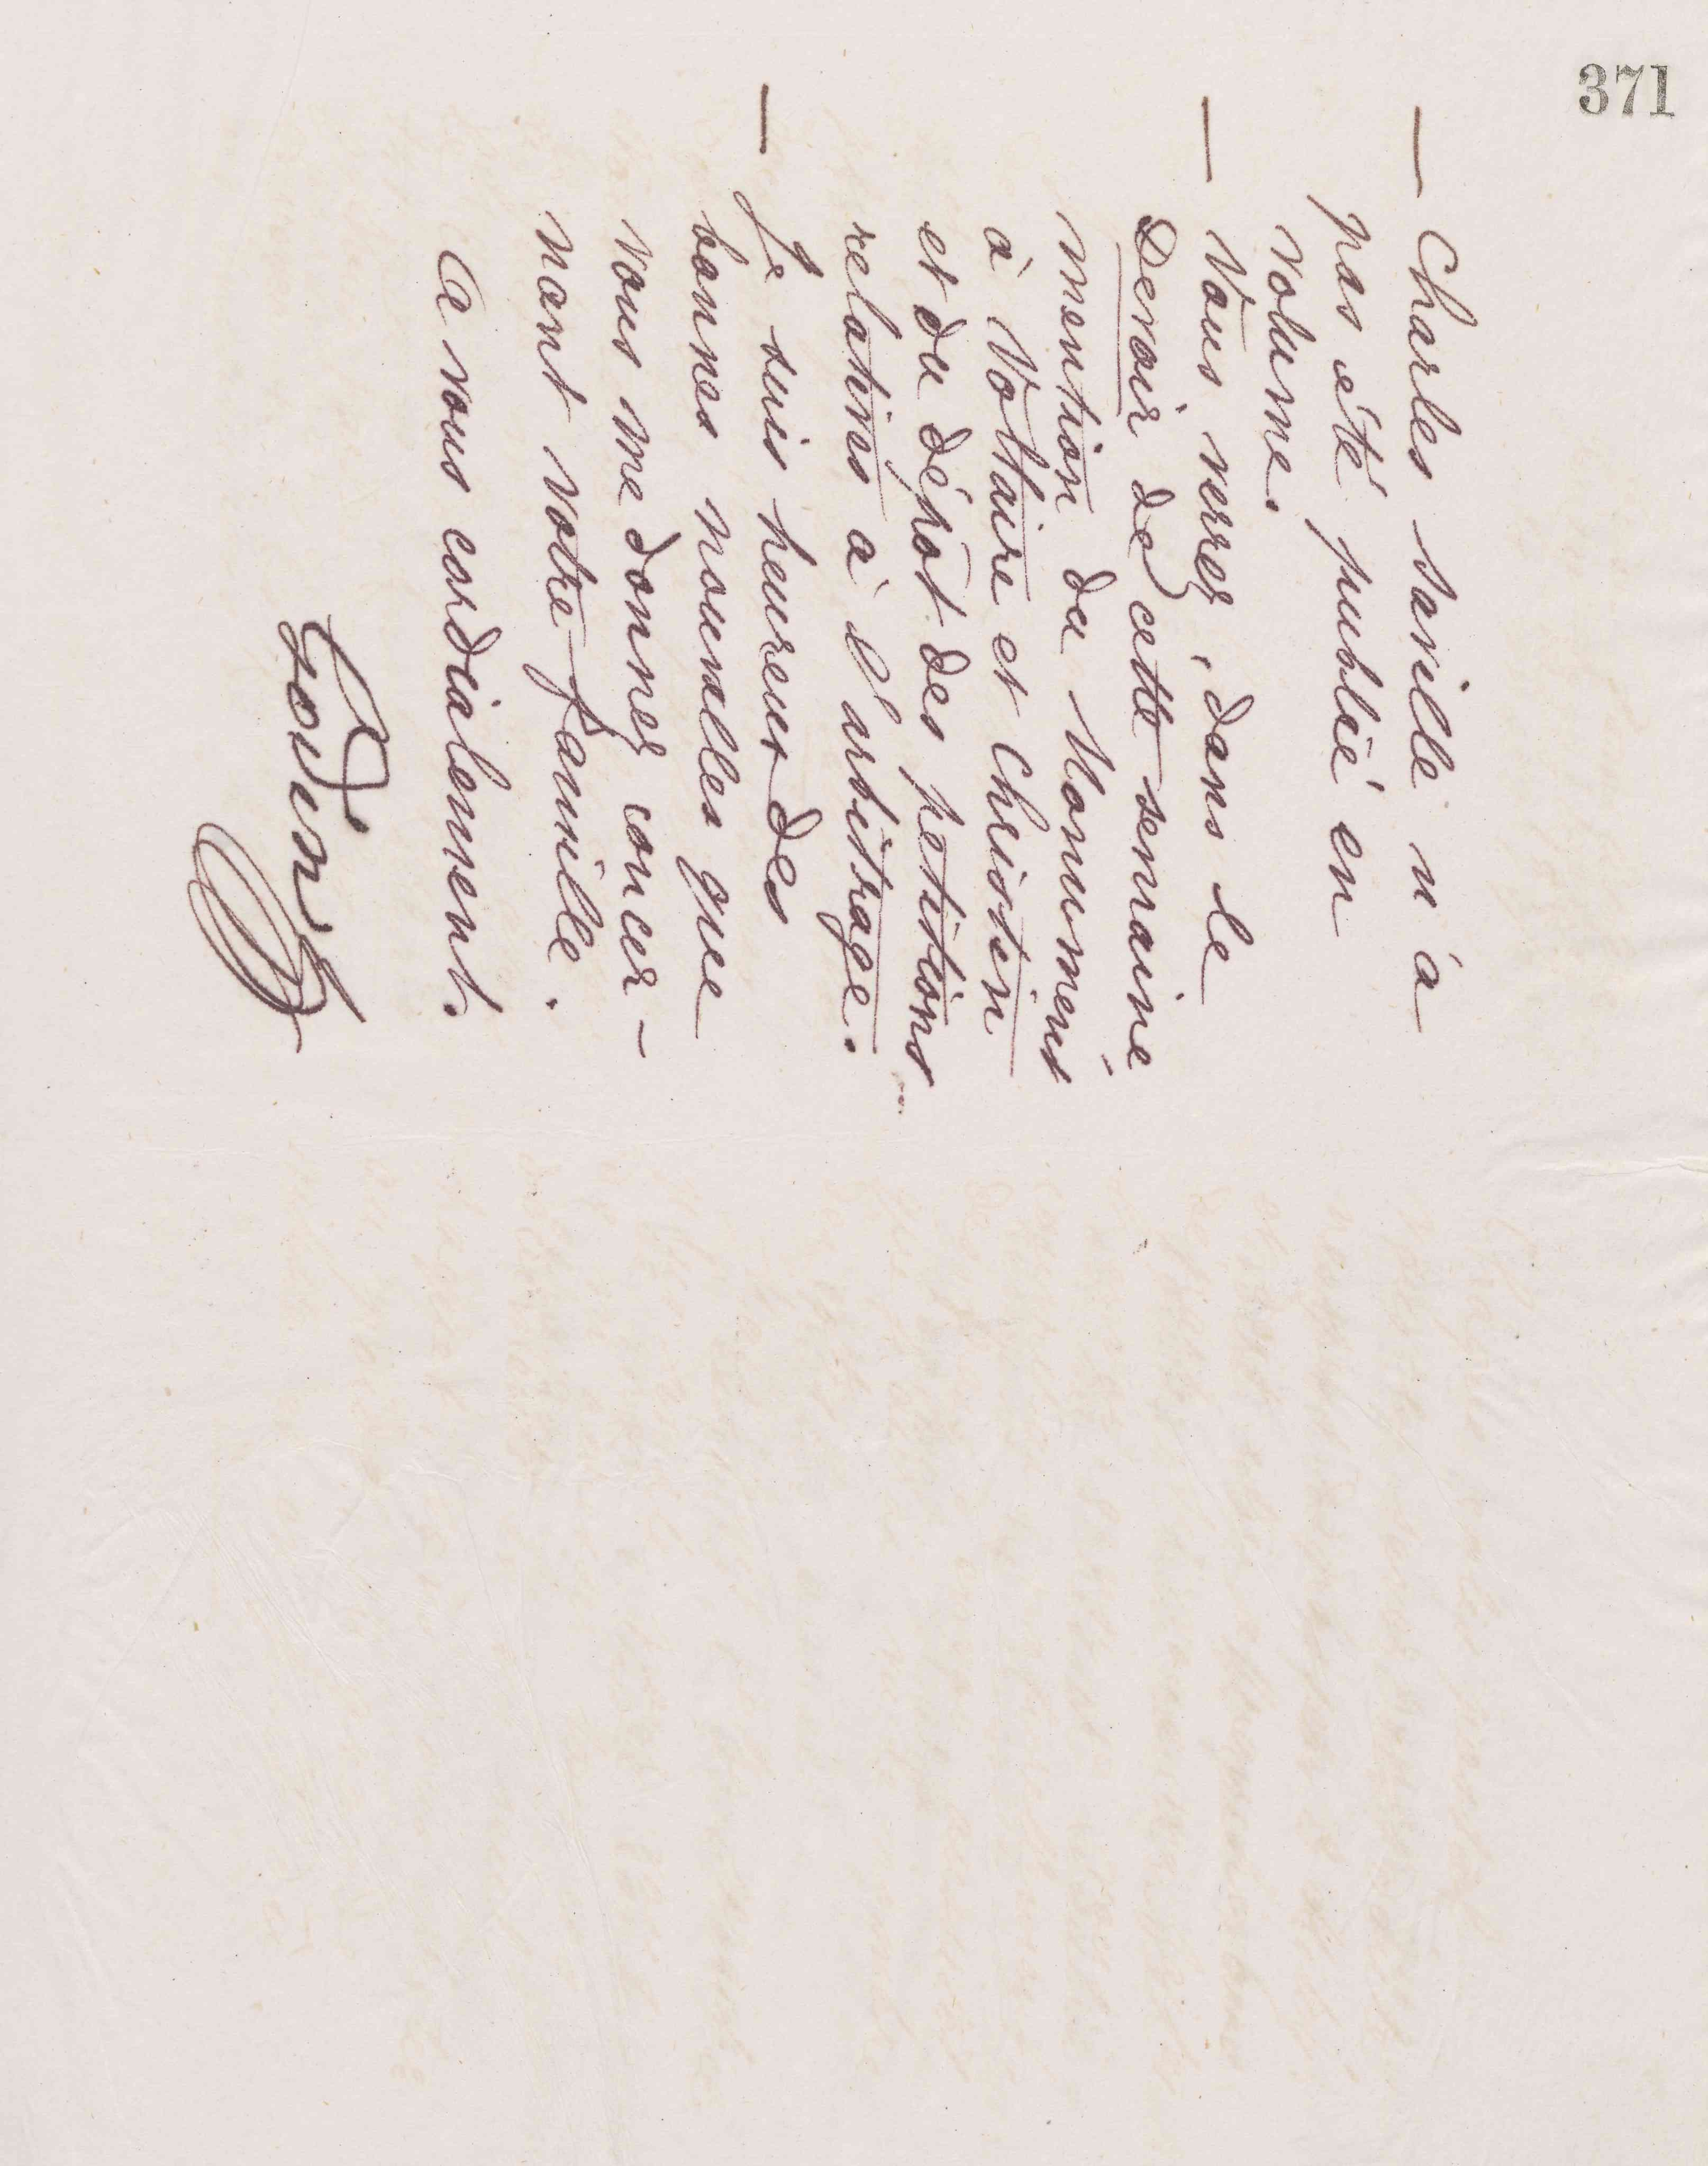 371
— Charles Saville n'a
pas été publié en
volume.
— Vous verrez, dans le
Devoir de cette semaine
mention du Monument
à Voltaire et Christin
et du dépôt des pétitions
relatives à l'arbitrage.
— Je suis heureux des
bonnes nouvelles que
vous me donnez concer-
nant votre famille.
A vous cordialement.
Godin